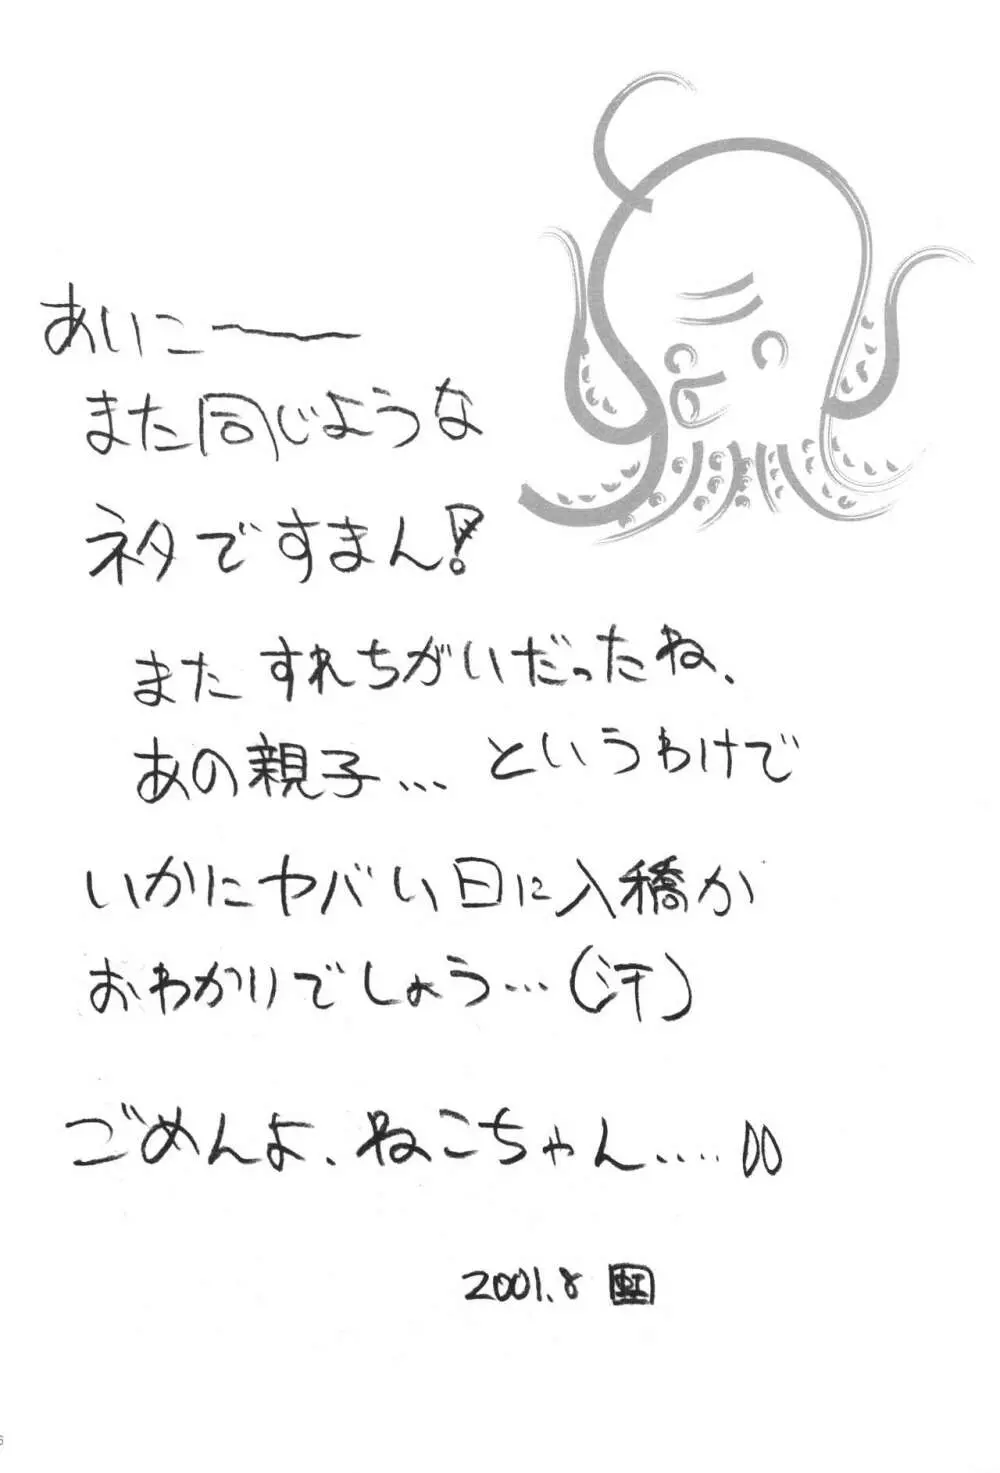 あいこ～
また同じような
ネタですまん!
またすれちがいだったね、
あの親子… というわけで
いかにヤバい日に入稿か
おわかりでしょう…(汗)
ごめんよ、ねこちゃん.....
2001.8 虹
6